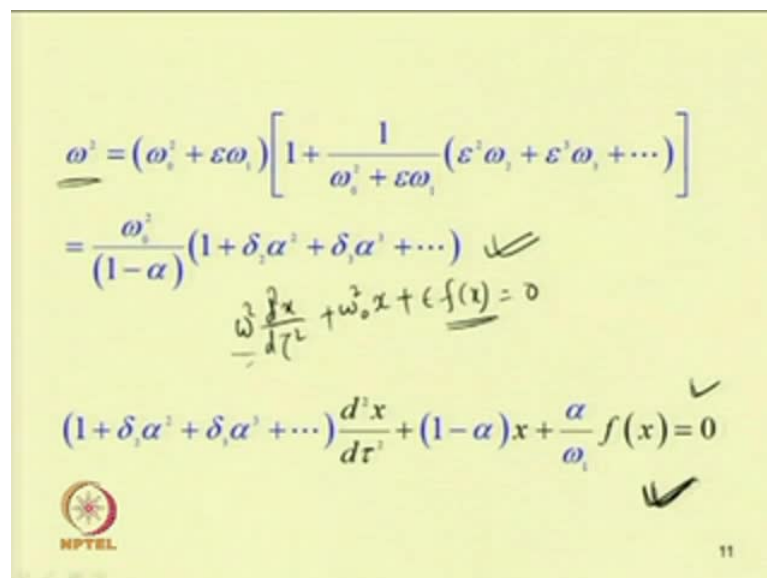 ω² = (ω₀² + εω₁)[1 + 1/(ω₀² + εω₁) (ε²ω₂ + ε³ω₃ + ⋯)]
= ω₀²/(1−α) (1 + δ₂α² + δ₃α³ + ⋯)
ω² d²x/dτ² + ω₀² x + ϵ f(x) = 0
(1 + δ₂α² + δ₃α³ + ⋯) d²x/dτ² + (1−α)x + α/ω₁ f(x) = 0
NPTEL
11